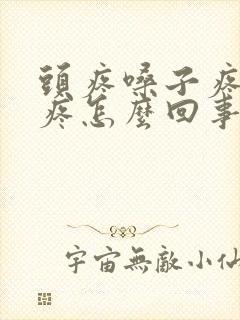 頭疼嗓子疼
疼怎麼回事
宇宙無敵小仙